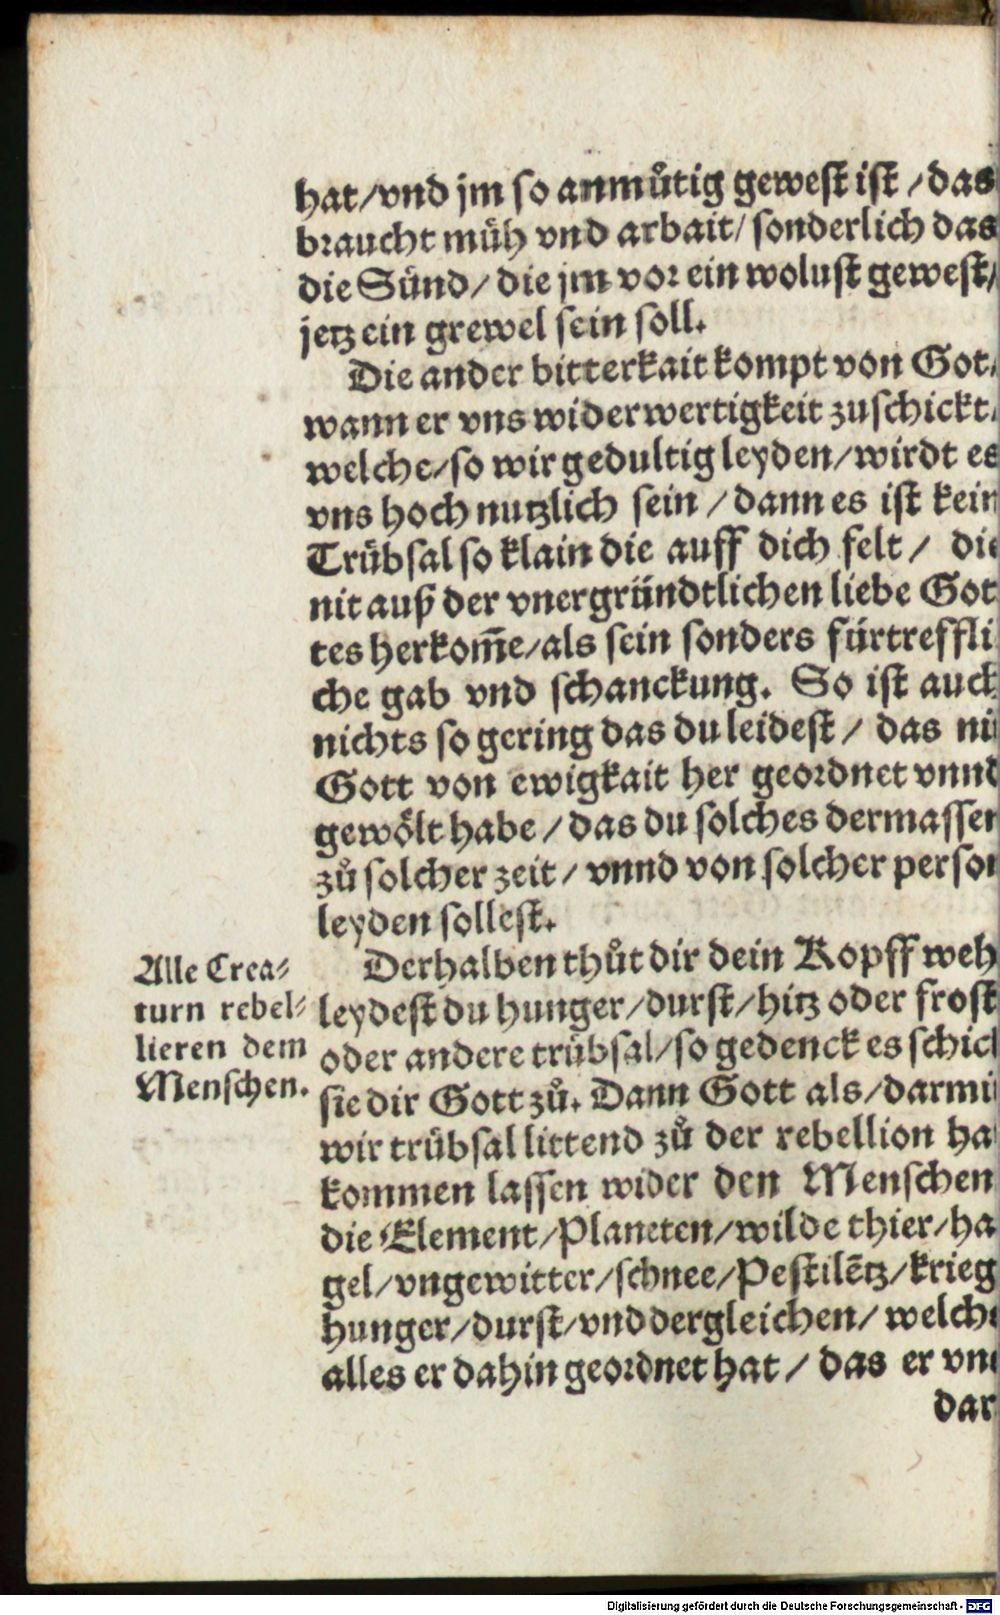 hat/vnd jm so anmůtig gewest ist/das
braucht müh vnd arbait/sonderlich das
die Sünd/die jm vor ein wolust gewest/
jetz ein grewel sein soll.
Die ander bitterkait kompt von Got
wann er vns widerwertigkeit zuschickt
welche/so wir gedultig leyden/wirdt es
vns hoch nutzlich sein/dann es ist kein
Trübsal so klain die auff dich felt/die
nit auß der vnergründtlichen liebe Got
tes herkom̄e/als sein sonders fürtreffli
che gab vnd schanckung. So ist auch
nichts so gering das du leidest/das ni
Gott von ewigkait her geordnet vnnd
gewölt habe/das du solches dermassen
zů solcher zeit/vnnd von solcher person
leyden sollest.
Alle Crea⸗
turn rebel⸗
lieren dem
Menschen.
Derhalben thůt dir dein Kopff weh
leydest du hunger/durst/hitz oder frost
oder andere trübsal/so gedenck es schick
sie dir Gott zů. Dann Gott als/darmi
wir trübsal littend zů der rebellion ha
kommen lassen wider den Menschen
die Element/Planeten/wilde thier/ha
gel/vngewitter/schnee/Pestilētz/krieg
hunger/durst/vnd dergleichen/welche
alles er dahin geordnet hat/das er vns
dar
Digitalisierung gefördert durch die Deutsche Forschungsgemeinschaft - DFG